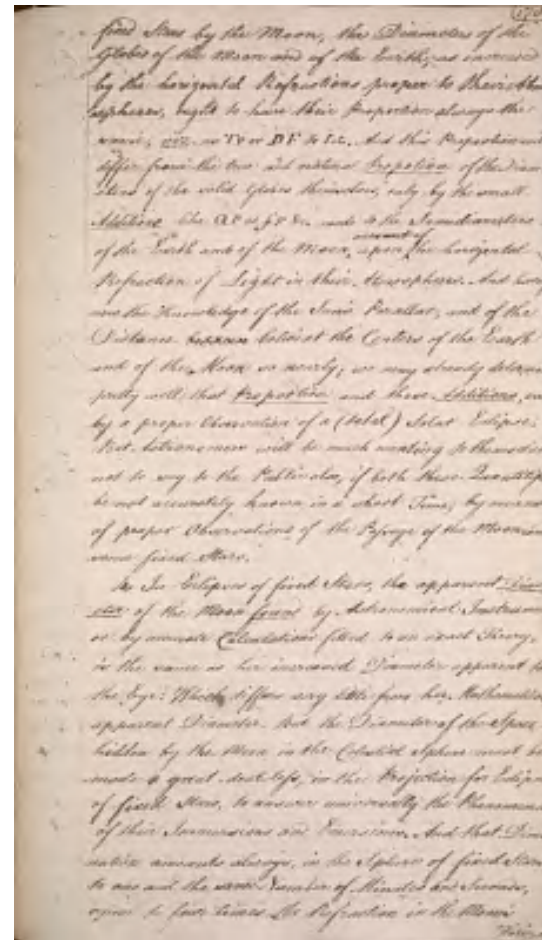 fixed Stars by the Moon, the Diameters of the
Globes of the Moon and of the Earth, as increased
by the horizontal Refractions proper to their Atm
ospheres, ought to have their Proportion always the
same, as TV or DF to Lc. And this Proportion
differ from the true and natural Propotion of the Diam
eters of the solid Globes themselves, only by the small
Additions like made to the Semidiameters
of the Earth and of the Moon, upon account of the horizontal
Refraction of Light in their Atmospheres. And
now the Knowledge of the Sun's Parallax, and of the
Distance betwixt the Centers of the Earth
and of the Moon so nearly, we may already determ
pretty well that Proportion and these Additions,
by a proper Observation of a (total) Solar Eclipse.
But Astronomers will be much wanting to themselves
not to say to the Public also, if both these Quantities
be not accurately known in a short Time, by means
of proper Observations of the Passage of the Moon
some fixed Stars.
In Eclipses of fixed Stars, the apparent Diam
eter of the Moon found by Astronomical Instrum
or by accurate Calculations fitted to an exact Theory,
is the same as her increased Diameter apparent to
the Eye: Which differs very little from her Mathematical
apparent Diameter. But the Diameter of the Space
hidden by the Moon in the Celestial Sphere must be
made a great deal less, in the Projection for Eclipses
of fixed Stars, to answer universally the Phenomena
of their Immersions and Emersions. And that Dimi
nution amounts always, in the Sphere of fixed Stars
to one and the same Number of Minutes and Seconds,
equal to four times the Refraction in the Moon's